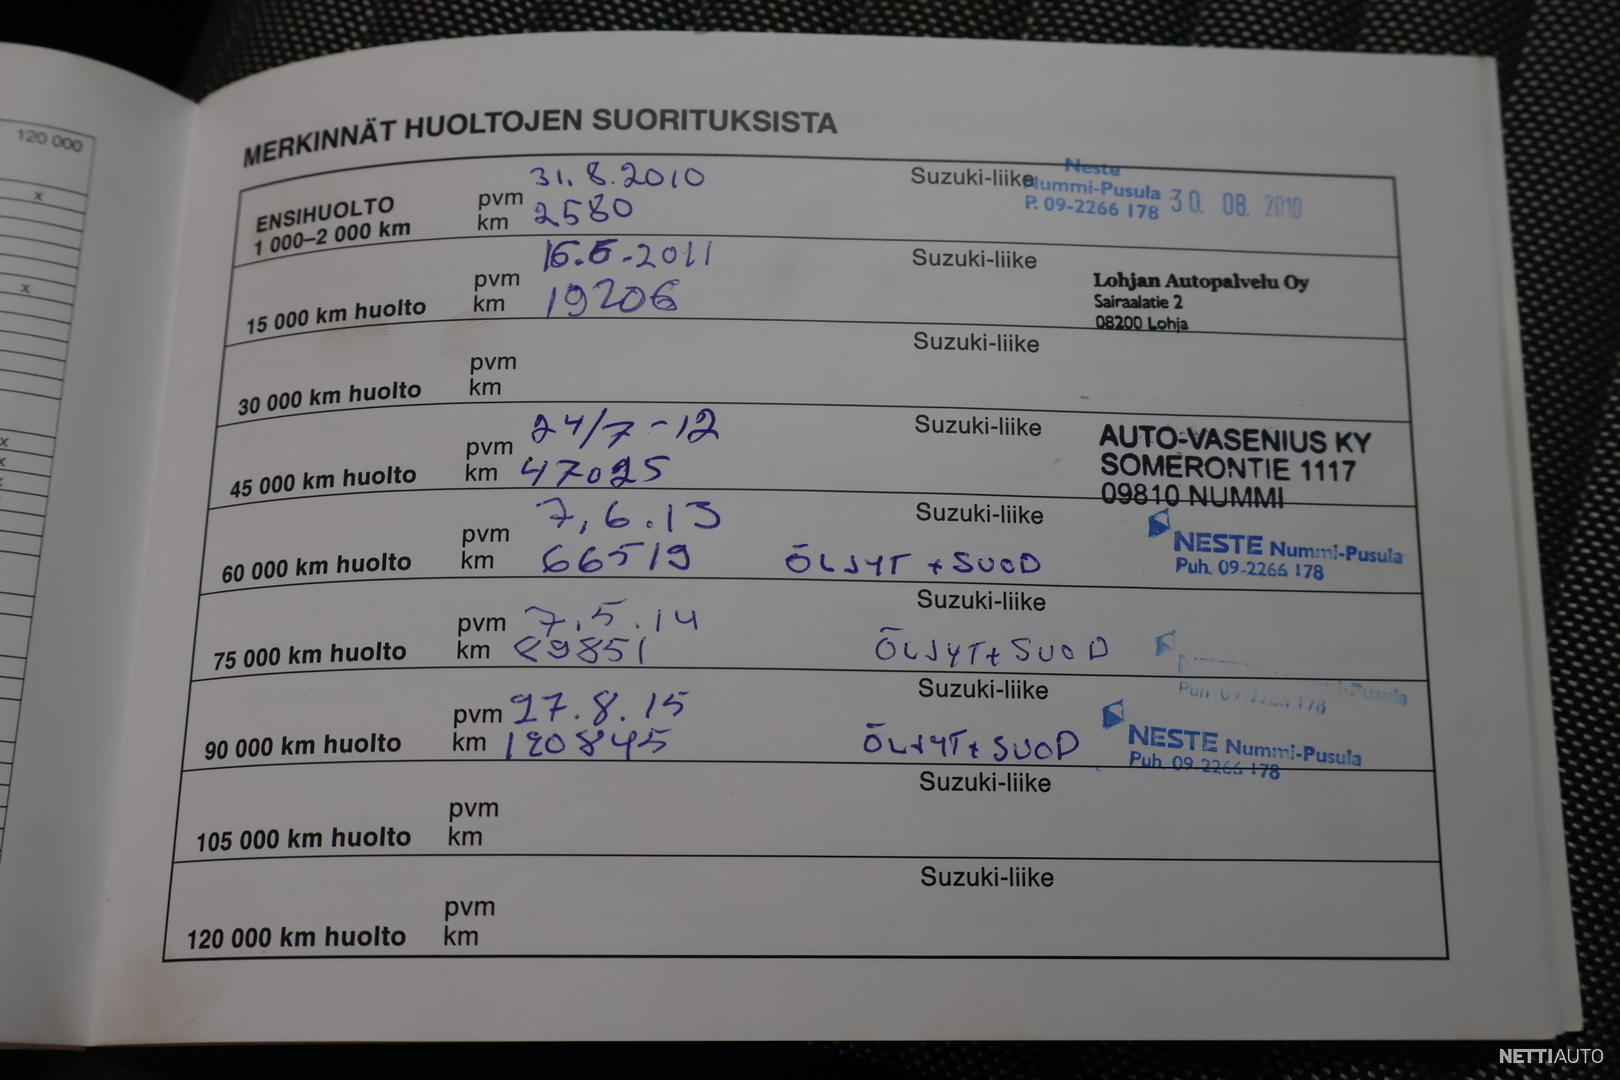 120 000
x
x
x
x
x
MERKINNÄT HUOLTOJEN SUORITUKSISTA
ENSIHUOLTO
1 000–2 000 km
pvm 31.8.2010
km 2580
Suzuki-liike
Neste
Nummi-Pusula
P. 09-2266 178
30. 08. 2010
15 000 km huolto
pvm 16.6.2011
km 19206
Suzuki-liike
Lohjan Autopalvelu Oy
Sairaalatie 2
08200 Lohja
30 000 km huolto
pvm
km
Suzuki-liike
45 000 km huolto
pvm 24/7-12
km 47025
Suzuki-liike
AUTO-VASENIUS KY
SOMERONTIE 1117
09810 NUMMI
60 000 km huolto
pvm 7.6.13
km 66519
ÖLJYT + SUOD
Suzuki-liike
NESTE Nummi-Pusula
Puh. 09-2266 178
75 000 km huolto
pvm 7.5.14
km 89851
ÖLJYT+ SUOD
Suzuki-liike
Puh 09-2266 178
90 000 km huolto
pvm 27.8.15
km 120845
ÖLJYT+ SUOD
Suzuki-liike
NESTE Nummi-Pusula
Puh. 09-2266 178
105 000 km huolto
pvm
km
Suzuki-liike
120 000 km huolto
pvm
km
Suzuki-liike
NETTIAUTO